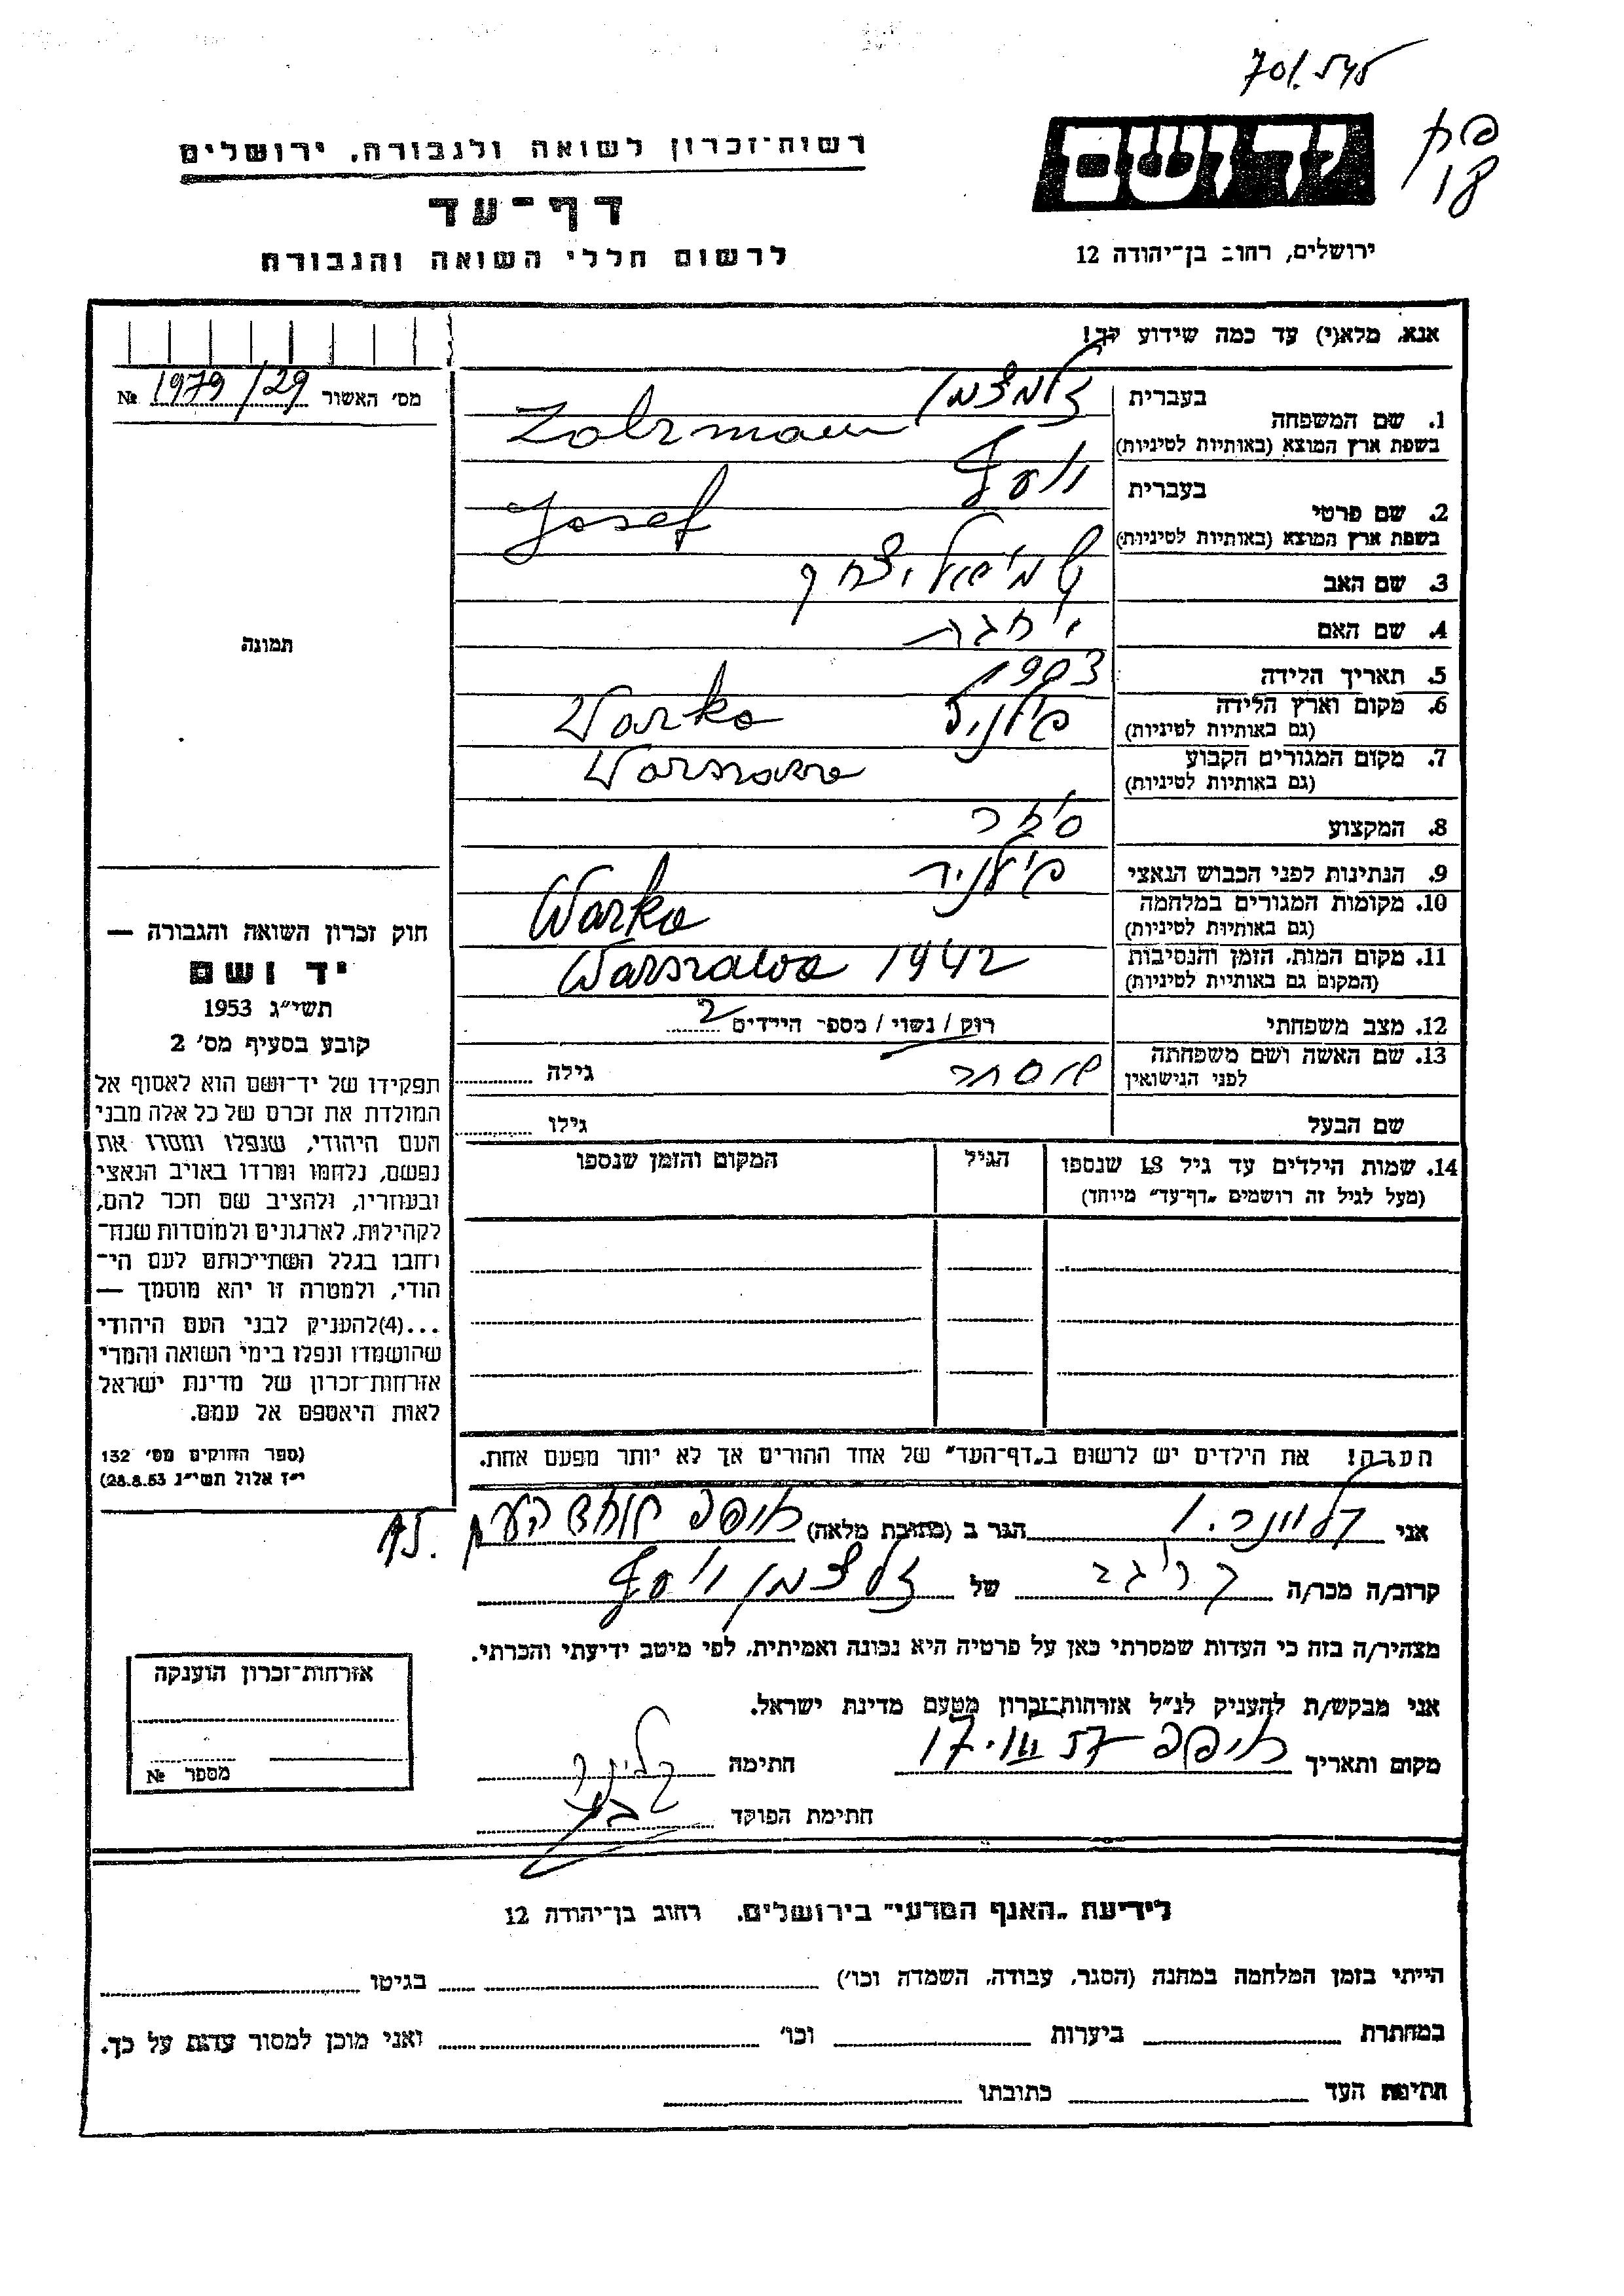 רשות־זכרון לשואה ולגבורה, ירושלים
דף־עד
לרשום חללי השואה והגבורה
יד ושם
ירושלים, רחוב בן־יהודה 12
אנא, מלא(י) עד כמה שידוע לך!
מס׳ האשור 1979/29 №
1. שם המשפחה בעברית זלצמן
בשפת ארץ המוצא (באותיות לטיניות) Zalzman
2. שם פרטי בעברית יוסף
בשפת ארץ המוצא (באותיות לטיניות) Josef
3. שם האב שמואל יצחק
4. שם האם
5. תאריך הלידה 1903
6. מקום וארץ הלידה פולניה Warka
(גם באותיות לטיניות)
7. מקום המגורים הקבוע Warszawa
(גם באותיות לטיניות)
8. המקצוע סוחר
9. הנתינות לפני הכבוש הנאצי פולנית
10. מקומות המגורים במלחמה Warka
(גם באותיות לטיניות)
11. מקום המות, הזמן והנסיבות Warszawa 1942
(המקום גם באותיות לטיניות)
12. מצב משפחתי רוק / נשוי / מספר הילדים 2
13. שם האשה ושם משפחתה אסתר גילה
לפני הנישואין
שם הבעל גילו
14. שמות הילדים עד גיל 18 שנספו הגיל המקום והזמן שנספו
(מעל לגיל זה רושמים „דף־עד” מיוחד)
תמונה
חוק זכרון השואה והגבורה —
יד ושם
תשי״ג 1953
קובע בסעיף מס׳ 2
תפקידו של יד־ושם הוא לאסוף אל
המולדת את זכרם של כל אלה מבני
העם היהודי, שנפלו ומסרו את
נפשם, נלחמו ומרדו באויב הנאצי
ובעוזריו, ולהציב שם וזכר להם,
לקהילות, לארגונים ולמוסדות שנח־
רבו בגלל השתייכותם לעם הי־
הודי, ולמטרה זו יהא מוסמך —
...(4)להעניק לבני העם היהודי
שהושמדו ונפלו בימי השואה והמרי
אזרחות־זכרון של מדינת ישראל
לאות היאספם אל עמם.
(ספר החוקים מס׳ 132
י״ז אלול תשי״ג 28.8.53)
הערה! את הילדים יש לרשום ב„דף־העד” של אחד ההורים אך לא יותר מפעם אחת.
אני הגר ב (כתובת מלאה) חיפה
קרוב/ה מכר/ה של זלצמן יוסף
מצהיר/ה בזה כי העדות שמסרתי כאן על פרטיה היא נכונה ואמיתית, לפי מיטב ידיעתי והכרתי.
אני מבקש/ת להעניק לנ״ל אזרחות־זכרון מטעם מדינת ישראל.
מקום ותאריך חיפה 17.III 57 חתימה
חתימת הפוקד
אזרחות־זכרון הוענקה
מספר №
לידיעת „האגף המדעי” בירושלים, רחוב בן־יהודה 12
הייתי בזמן המלחמה במחנה (הסגר, עבודה, השמדה וכו׳) בגיטו
במחתרת ביערות וכו׳ ואני מוכן למסור עדות על כך.
חתימת העד כתובתו